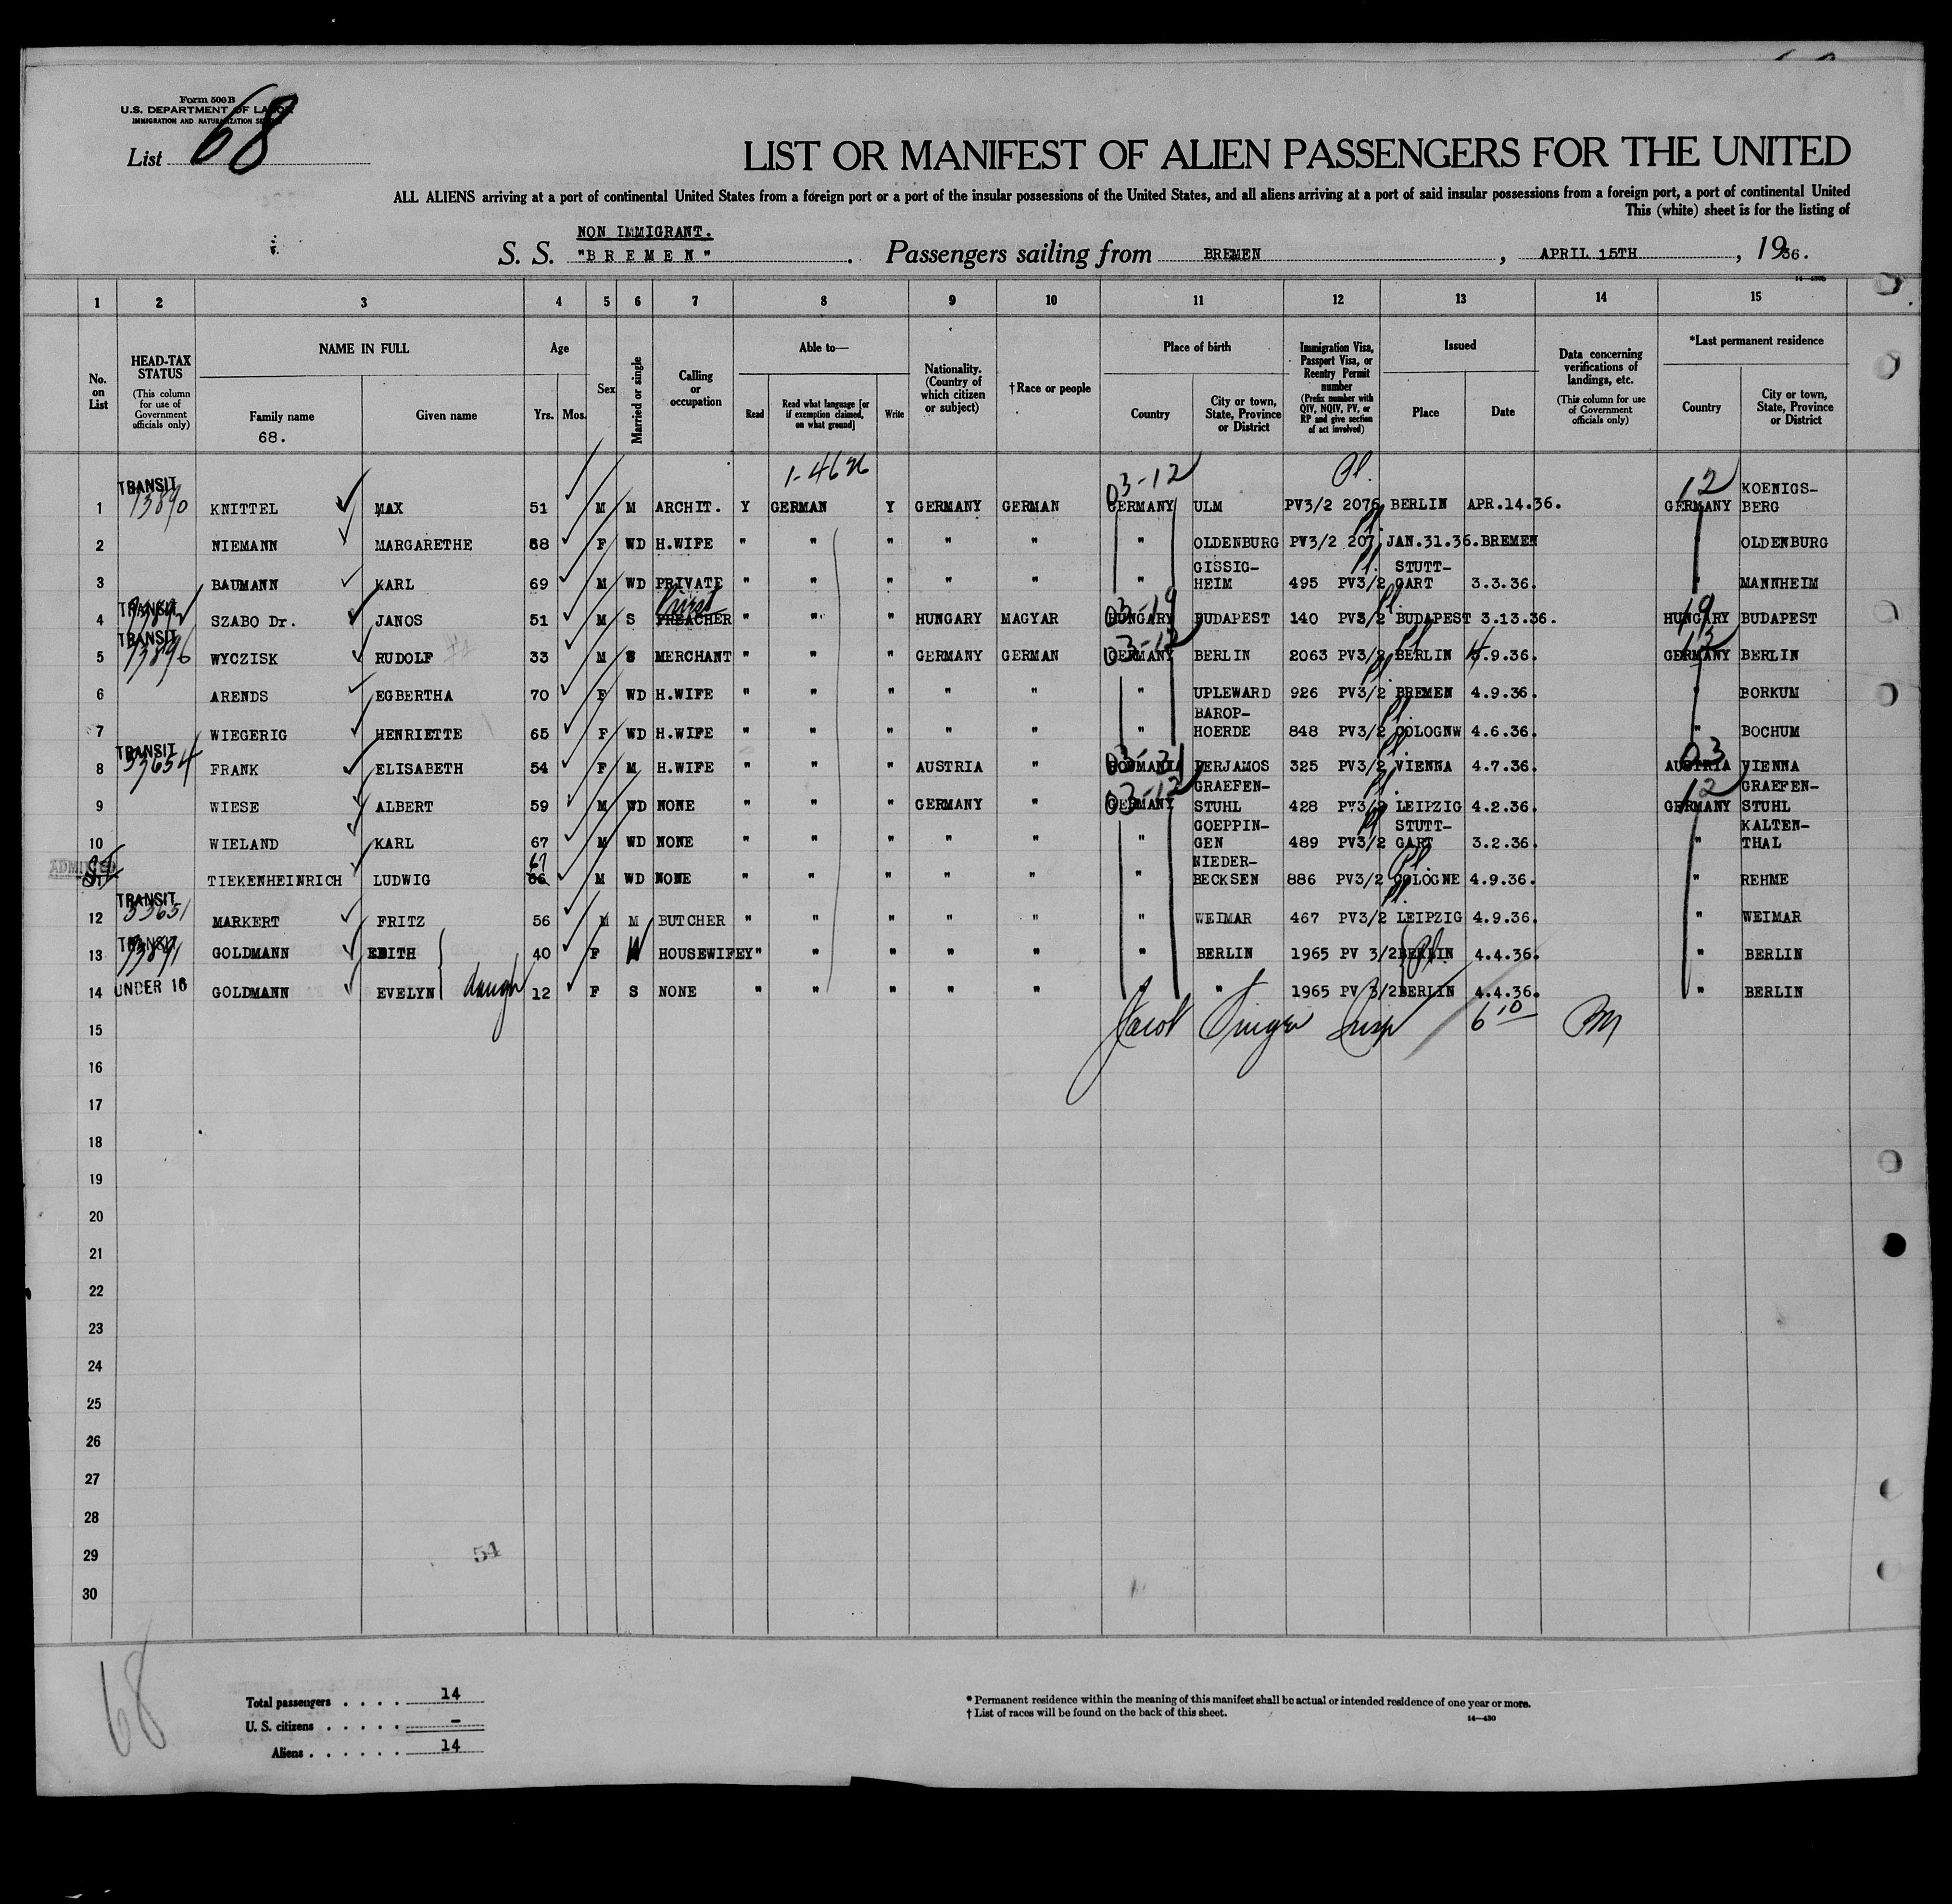 Form 500 B
U.S. DEPARTMENT OF LABOR
IMMIGRATION AND NATURALIZATION SERVICE
List 68
LIST OR MANIFEST OF ALIEN PASSENGERS FOR THE UNITED
ALL ALIENS arriving at a port of continental United States from a foreign port or a port of the insular possessions of the United States, and all aliens arriving at a port of said insular possessions from a foreign port, a port of continental United
This (white) sheet is for the listing of
NON IMMIGRANT.
S. S. "BREMEN". Passengers sailing from BREMEN, APRIL 15TH, 1936.
1 2 3 4 5 6 7 8 9 10 11 12 13 14 15
No. on List
HEAD-TAX STATUS (This column for use of Government officials only)
NAME IN FULL Family name Given name
68.
Age Yrs. Mos.
Sex
Married or single
Calling or occupation
Able to— Read Read what language [or if exemption claimed, on what ground] Write
Nationality. (Country of which citizen or subject)
†Race or people
Place of birth Country City or town, State, Province or District
Immigration Visa, Passport Visa, or Reentry Permit number (Prefix number with QIV, NQIV, PV, or RP and give section of act involved)
Issued Place Date
Data concerning verifications of landings, etc. (This column for use of Government officials only)
*Last permanent residence Country City or town, State, Province or District
1 TRANSIT 93890 KNITTEL MAX 51 M M ARCHIT. Y GERMAN Y GERMANY GERMAN 03-12 GERMANY ULM PV3/2 2076 BERLIN APR.14.36. 12 GERMANY KOENIGS-BERG
2 NIEMANN MARGARETHE 68 F WD H.WIFE " " " " " " OLDENBURG PV3/2 207 JAN.31.36.BREMEN " OLDENBURG
3 BAUMANN KARL 69 M WD PRIVATE " " " " " " GISSIG-HEIM 495 PV3/2 STUTT-GART 3.3.36. " MANNHEIM
4 TRANSIT 93892 SZABO Dr. JANOS 51 M S PREACHER Priest " " " HUNGARY MAGYAR 03-19 HUNGARY BUDAPEST 140 PV3/2 BUDAPEST 3.13.36. 19 HUNGARY BUDAPEST
5 TRANSIT 93896 WYCZISK RUDOLF 33 M S MERCHANT " " " GERMANY GERMAN 03-12 GERMANY BERLIN 2063 PV3/2 BERLIN 4.9.36. 12 GERMANY BERLIN
6 ARENDS EGBERTHA 70 F WD H.WIFE " " " " " " UPLEWARD 926 PV3/2 BREMEN 4.9.36. " BORKUM
7 WIEGERIG HENRIETTE 65 F WD H.WIFE " " " " " " BAROP-HOERDE 848 PV3/2 COLOGNW 4.6.36. " BOCHUM
8 TRANSIT 53654 FRANK ELISABETH 54 F M H.WIFE " " " AUSTRIA " 03-31 ROUMANIA PERJAMOS 325 PV3/2 VIENNA 4.7.36. 03 AUSTRIA VIENNA
9 WIESE ALBERT 59 M WD NONE " " " GERMANY " 03-12 GERMANY GRAEFEN-STUHL 428 PV3/2 LEIPZIG 4.2.36. 12 GERMANY GRAEFEN-STUHL
10 WIELAND KARL 67 M WD NONE " " " " " " GOEPPIN-GEN 489 PV3/2 STUTT-GART 3.2.36. " KALTEN-THAL
ADMITTED SI 11 TIEKENHEINRICH LUDWIG 67 66 M WD NONE " " " " " " NIEDER-BECKSEN 886 PV3/2 COLOGNE 4.9.36. " REHME
12 TRANSIT 53651 MARKERT FRITZ 56 M M BUTCHER " " " " " " WEIMAR 467 PV3/2 LEIPZIG 4.9.36. " WEIMAR
13 TRANSIT 93891 GOLDMANN EDITH 40 F W HOUSEWIFEY" " " " " " BERLIN 1965 PV 3/2BERLIN 4.4.36. " BERLIN
14 UNDER 16 GOLDMANN EVELYN daugh 12 F S NONE " " " " " " " 1965 PV 3/2BERLIN 4.4.36. " BERLIN
15 Jacob Singer Insp 6 10
16
17
18
19
20
21
22
23
24
25
26
27
28
29
30
54
68
Total passengers . . . . 14
U. S. citizens . . . . . –
Aliens . . . . . . 14
* Permanent residence within the meaning of this manifest shall be actual or intended residence of one year or more.
† List of races will be found on the back of this sheet.
14—430